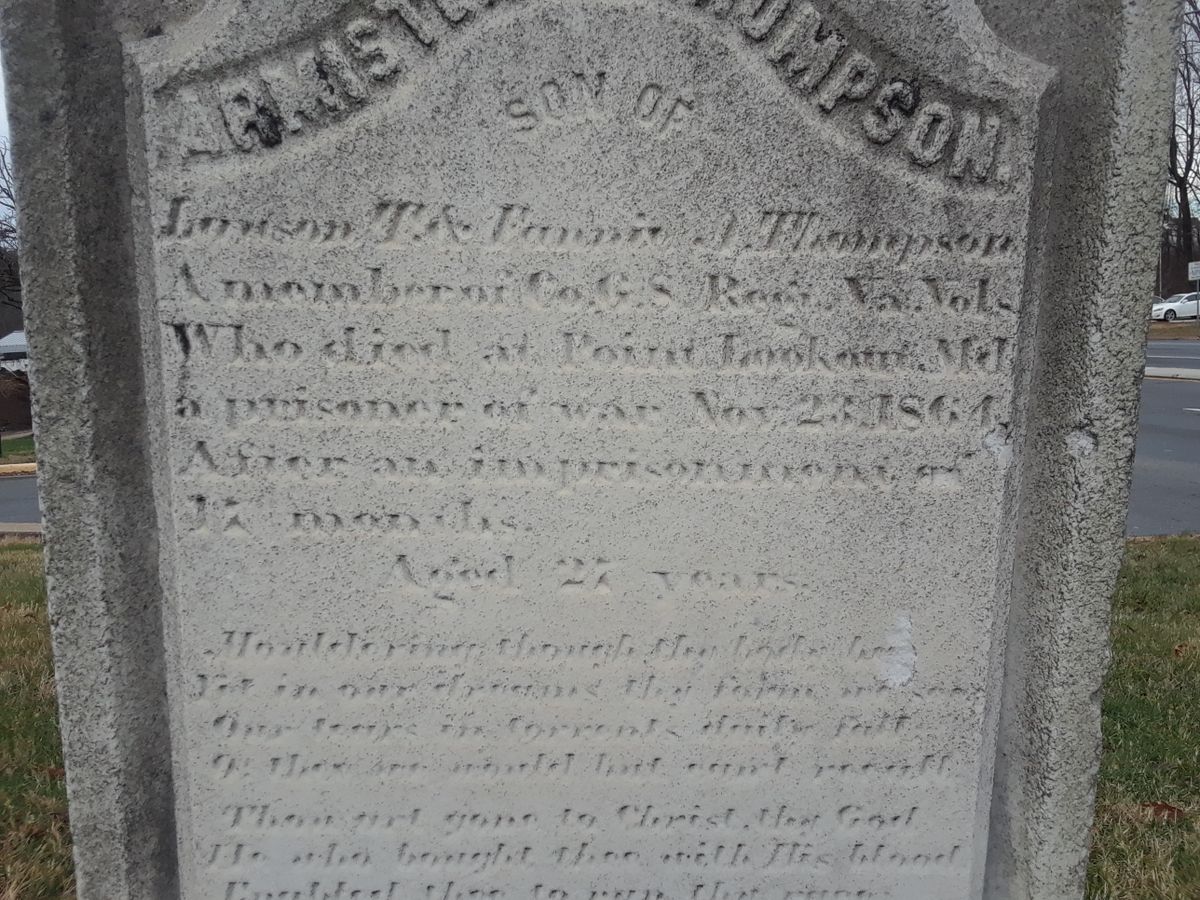 ARMISTEAD THOMPSON.
SON OF
Lowson T. & Fannie A. Thompson
A member of Co, G. 8 Regi. Va. Vols
Who died at Point Lookout Md
a prisoner of war Nov, 23, 1864,
After an imprisonment of
17 months.
Aged 27 years.
Mouldering though thy body be
Yet in our dreams thy form we see
Our tears in torrents daily fall
O, thee we would but can't recall
Thou art gone to Christ, thy God
He who bought thee with His blood
Enabled thee to run thy race